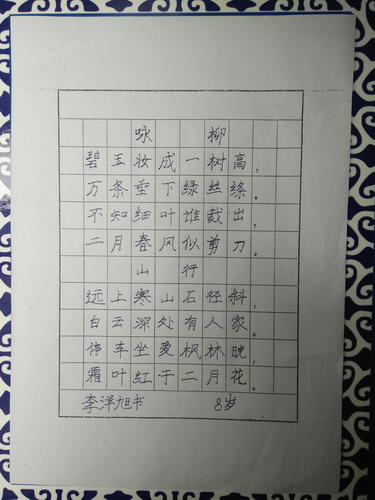 咏柳
碧玉妆成一树高，
万条垂下绿丝绦。
不知细叶谁裁出，
二月春风似剪刀。
山行
远上寒山石径斜，
白云深处有人家。
停车坐爱枫林晚，
霜叶红于二月花。
李洋旭书 8岁